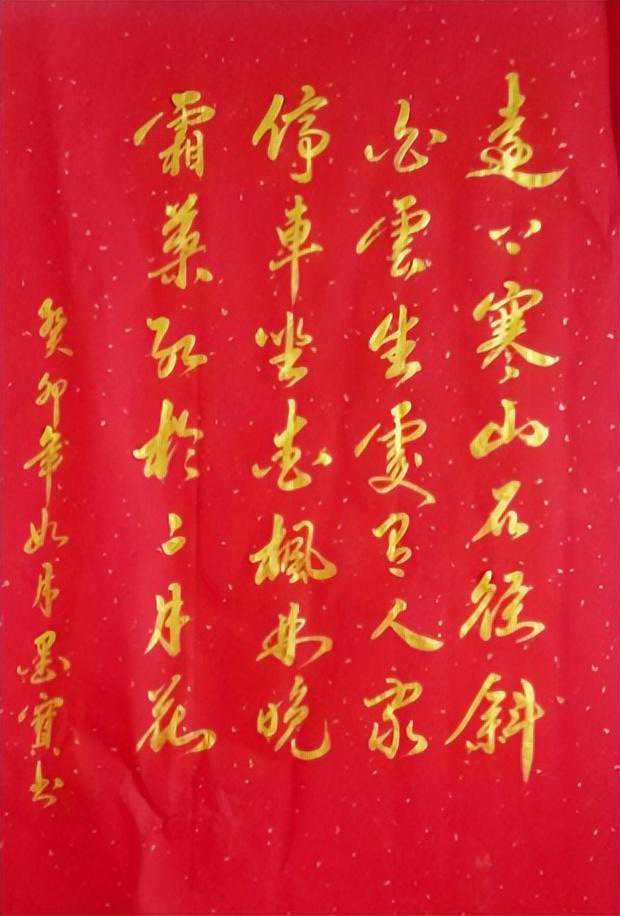 遠上寒山石徑斜
白雲生處有人家
停車坐愛楓林晚
霜葉紅於二月花
癸卯年如月墨寶書